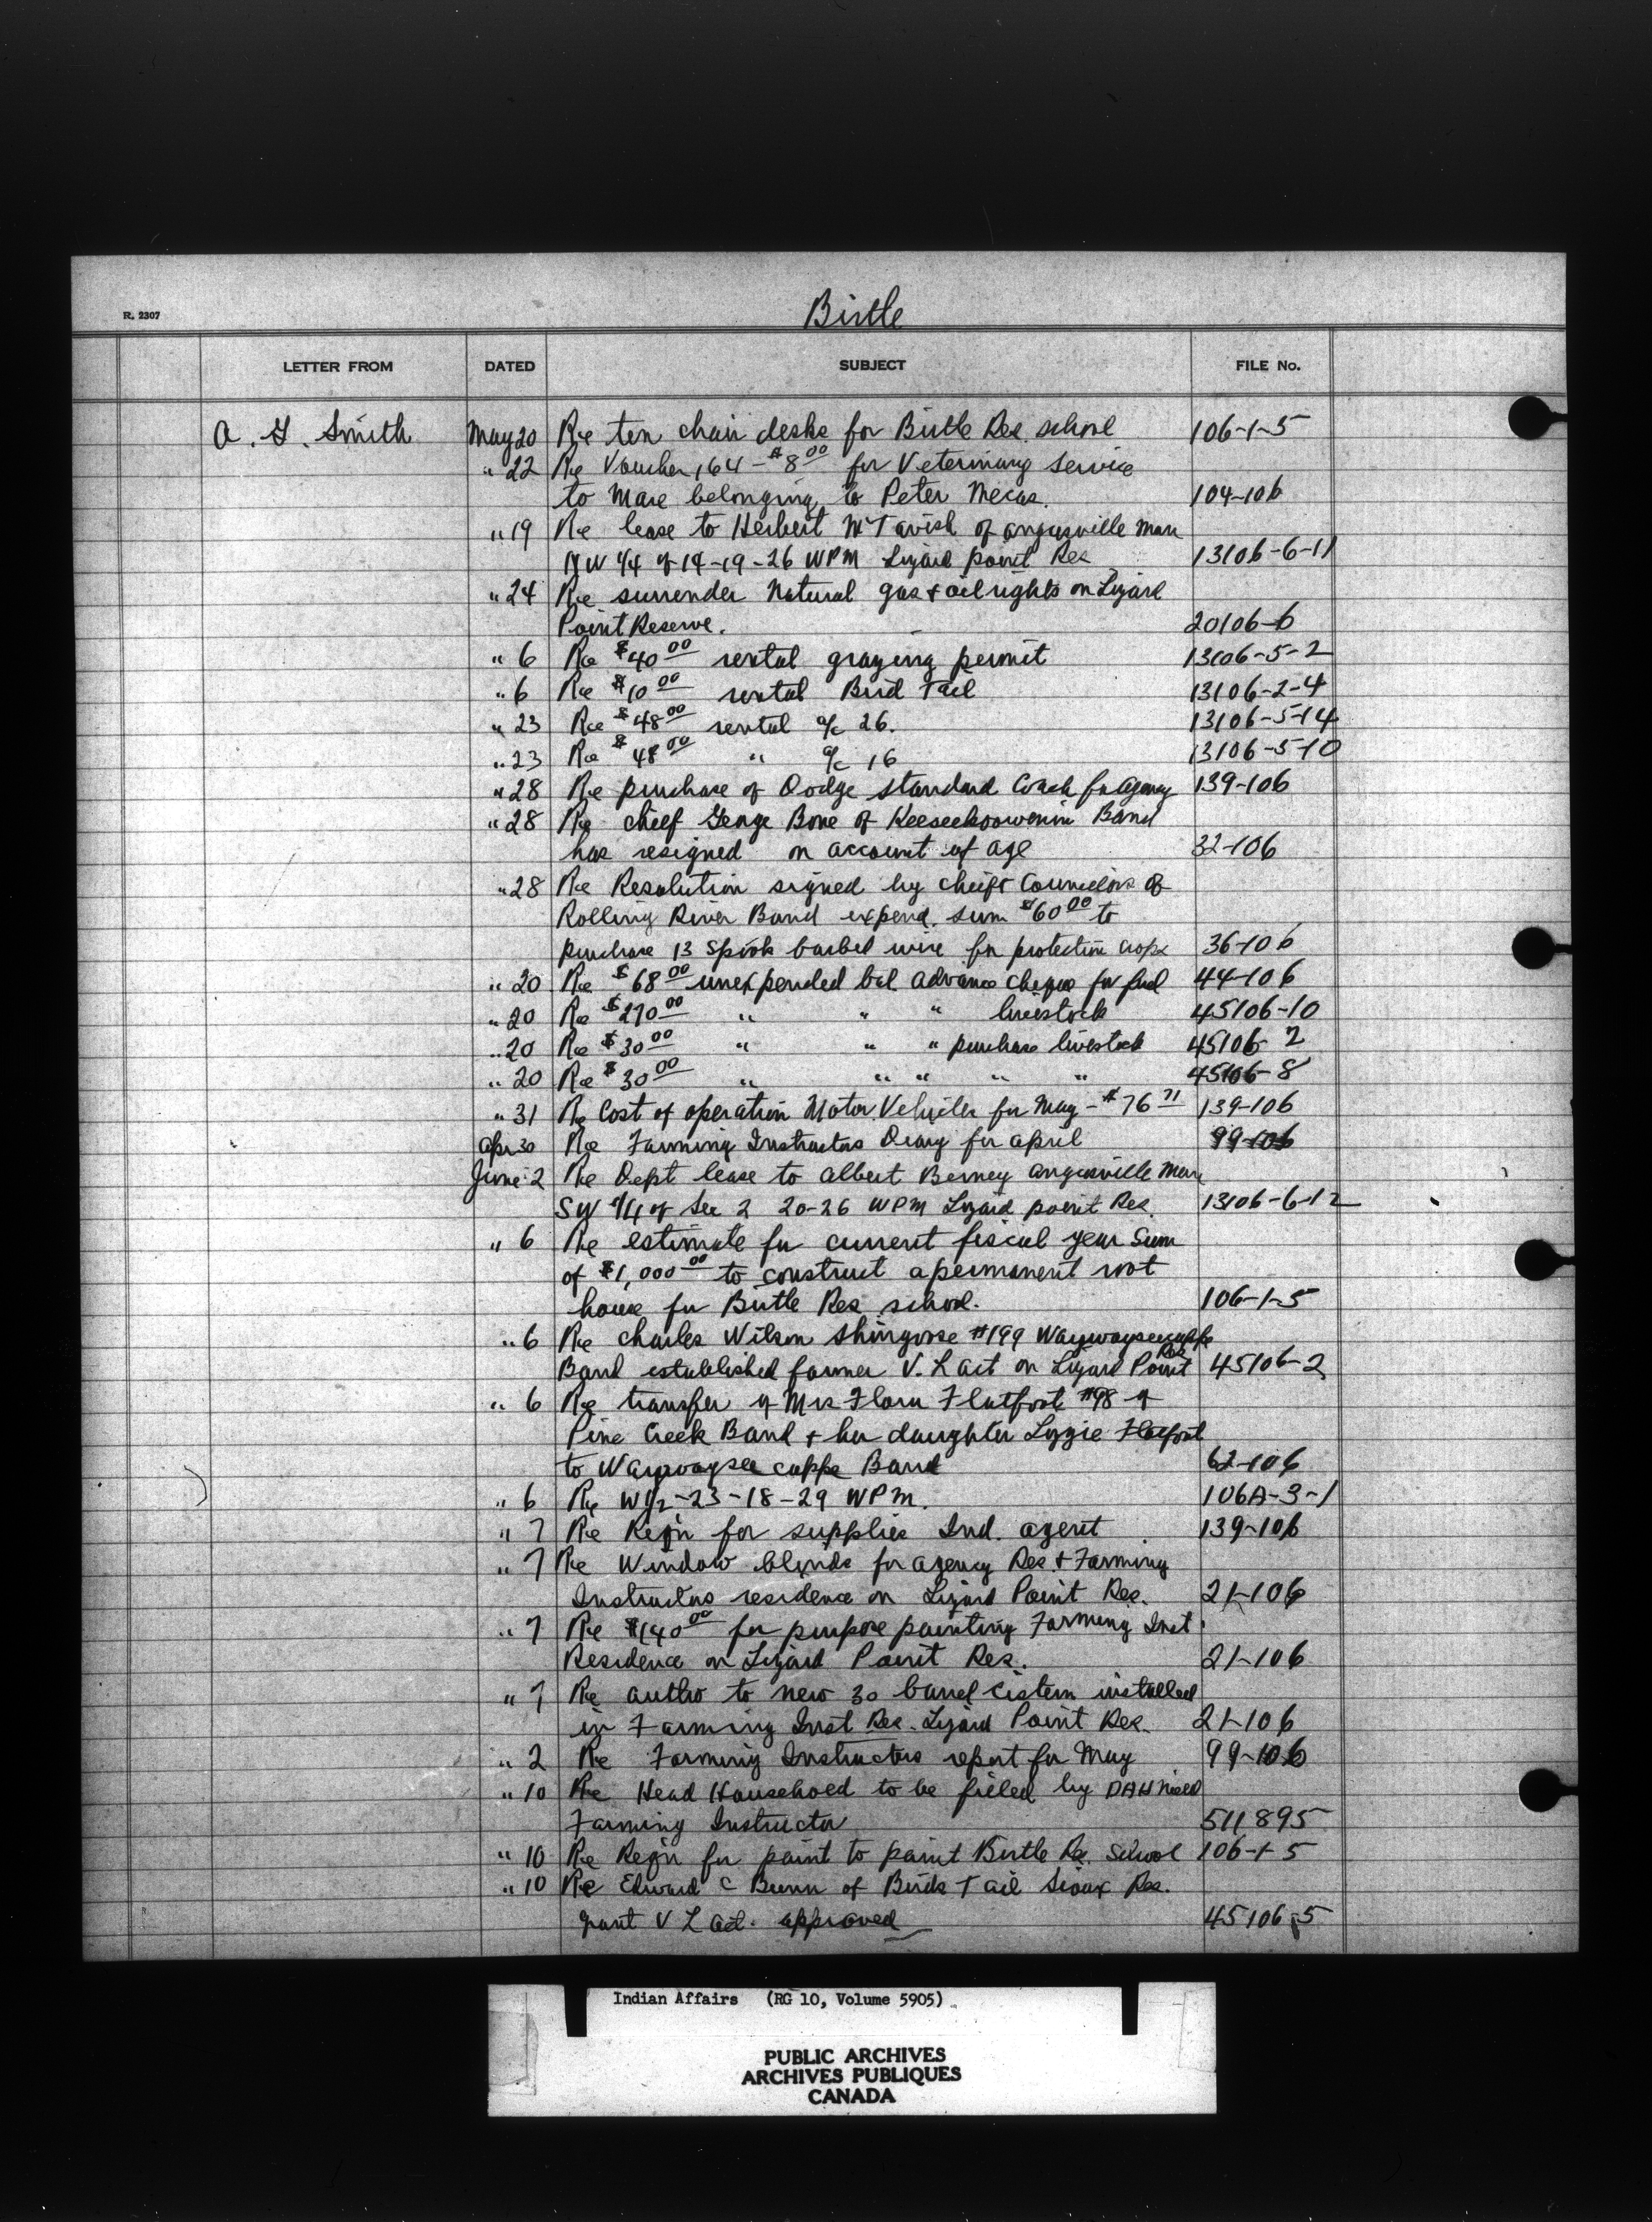 R. 2307
Birtle
LETTER FROM DATED SUBJECT FILE No.
A. G. Smith May 20 Re ten chair desks for Birtle Res. school 106-1-5
" 22 Re Voucher 164 - $8.00 for Veterinary Service
to Mare belonging to Peter Mecas. 104-106
" 19 Re lease to Herbert McTavish of Angusville Man
NW 1/4 of 14-19-26 WPM Lizard point Res 13106-6-11
" 24 Re surrender Natural gas & oil rights on Lizard
Point Reserve. 20106-6
" 6 Re $40.00 rental grazing permit 13106-5-2
" 6 Re $10.00 rental Bird Tail 13106-2-4
" 23 Re $48.00 rental a/c 26. 13106-5-14
" 23 Re $48.00 " a/c 16 13106-5-10
" 28 Re purchase of Dodge Standard Coach for Agency 139-106
" 28 Re chief George Bone of Keeseekoowenin Band
has resigned on account of age 32-106
" 28 Re Resolution signed by chief & Councilors of
Rolling River Band expend. sum $60.00 to
purchase 13 Spools barbed wire for protection crops 36-106
" 20 Re $68.00 unexpended bal advance cheque for fuel 44-106
" 20 Re $270.00 " " " livestock 45106-10
" 20 Re $30.00 " " " purchase livestock 45106-2
" 20 Re $30.00 " " " " " 45106-8
" 31 Re Cost of operation Motor Vehicles for May - $76.71 139-106
Apr 30 Re Farming Instructors Diary for April 99-106
June 2 Re Dept lease to Albert Berney Angusville Man
SW 1/4 of Sec 2 20-26 WPM Lizard point Res. 13106-6-12
" 6 Re estimate for current fiscal year Sum
of $1,000.00 to construct a permanent root
house for Birtle Res school. 106-1-5
" 6 Re Charles Wilson Shingoose #199 Waywayseecappo
Band established farmer V. L act on Lizard Point Res 45106-2
" 6 Re transfer of Mrs Flora Flatfoot #98 of
Pine Creek Band & her daughter Lizzie Flatfoot
to Waywaysee cappo Band 62-106
" 6 Re W1/2-23-18-29 WPM. 106A-3-1
" 7 Re Reqn for supplies Ind. agent 139-106
" 7 Re Window blinds for agency Res & Farming
Instructors residence on Lizard Point Res. 21-106
" 7 Re $140.00 for purpose painting Farming Inst.
Residence on Lizard Point Res. 21-106
" 7 Re autho to new 30 barrel cistern installed
in Farming Inst Res. Lizard Point Res. 21-106
" 2 Re Farming Instructors report for May 99-106
" 10 Re Head Household to be filled by DAH
Farming Instructor 511895
" 10 Re Reqn for paint to paint Birtle Re. School 106-1-5
" 10 Re Edward C Bunn of Birds Tail Sioux Res.
grant V L act. approved 45106-5
Indian Affairs (RG 10, Volume 5905)
PUBLIC ARCHIVES
ARCHIVES PUBLIQUES
CANADA